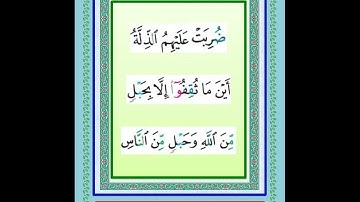 ضُرِبَتْ عَلَيْهِمُ ٱلذِّلَّةُ
أَيْنَ مَا ثُقِفُوٓا۟ إِلَّا بِحَبْلٍ
مِّنَ ٱللَّهِ وَحَبْلٍ مِّنَ ٱلنَّاسِ